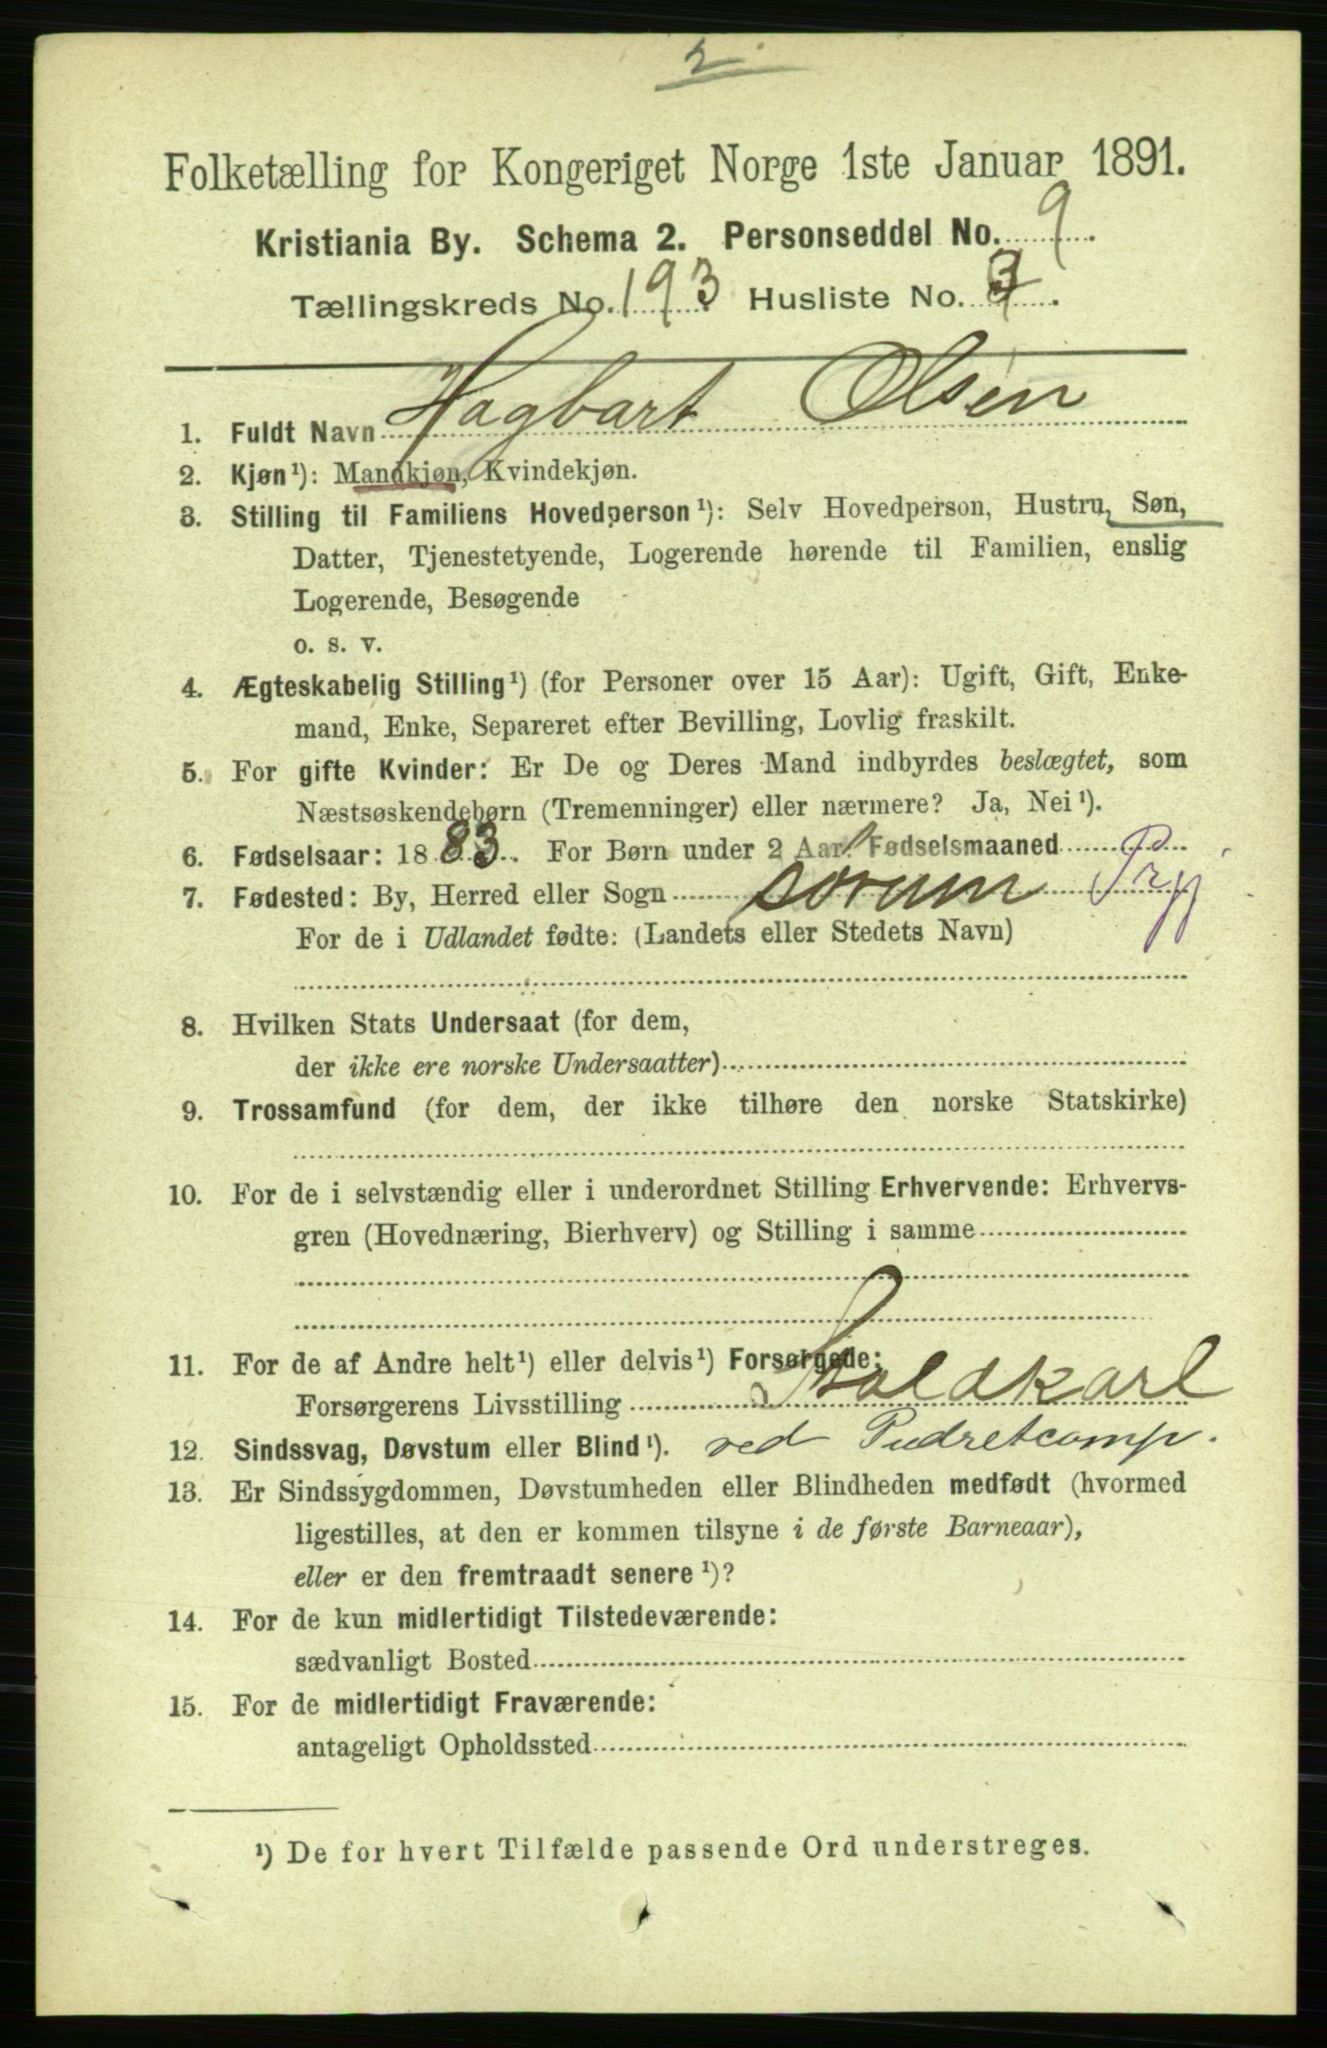 2.
Folketælling for Kongeriget Norge 1ste Januar 1891.
Kristiania By. Schema 2. Personseddel No. 9.
Tællingskreds No. 193 Husliste No. 3.
1. Fuldt Navn Hagbart Olsen
2. Kjøn¹): Mandkjøn, Kvindekjøn.
3. Stilling til Familiens Hovedperson¹): Selv Hovedperson, Hustru, Søn,
Datter, Tjenestetyende, Logerende hørende til Familien, enslig
Logerende, Besøgende
o. s. v.
4. Ægteskabelig Stilling¹) (for Personer over 15 Aar): Ugift, Gift, Enke-
mand, Enke, Separeret efter Bevilling, Lovlig fraskilt.
5. For gifte Kvinder: Er De og Deres Mand indbyrdes beslægtet, som
Næstsøskendebørn (Tremenninger) eller nærmere? Ja, Nei¹).
6. Fødselsaar: 1883. For Børn under 2 Aar: Fødselsmaaned
7. Fødested: By, Herred eller Sogn Sørum
For de i Udlandet fødte: (Landets eller Stedets Navn)
8. Hvilken Stats Undersaat (for dem,
der ikke ere norske Undersaatter)
9. Trossamfund (for dem, der ikke tilhøre den norske Statskirke)
10. For de i selvstændig eller i underordnet Stilling Erhvervende: Erhvervs-
gren (Hovednæring, Bierhverv) og Stilling i samme
11. For de af Andre helt¹) eller delvis¹) Forsørgede:
Forsørgerens Livsstilling Staldkarl
12. Sindssvag, Døvstum eller Blind¹). ved Pudretcomp.
13. Er Sindssygdommen, Døvstumheden eller Blindheden medfødt (hvormed
ligestilles, at den er kommen tilsyne i de første Barneaar),
eller er den fremtraadt senere¹)?
14. For de kun midlertidigt Tilstedeværende:
sædvanligt Bosted
15. For de midlertidigt Fraværende:
antageligt Opholdssted
¹) De for hvert Tilfælde passende Ord understreges.